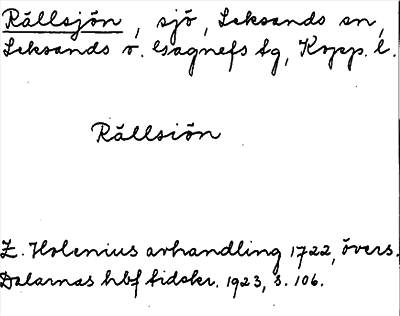 Rällsjön, sjö, Leksands sn,
Leksands o. Gagnefs tg, Kopp. l.
Rällsiön
Z. Holenius avhandling 1722, övers.
Dalarnas hbf tidskr. 1923, s. 106.